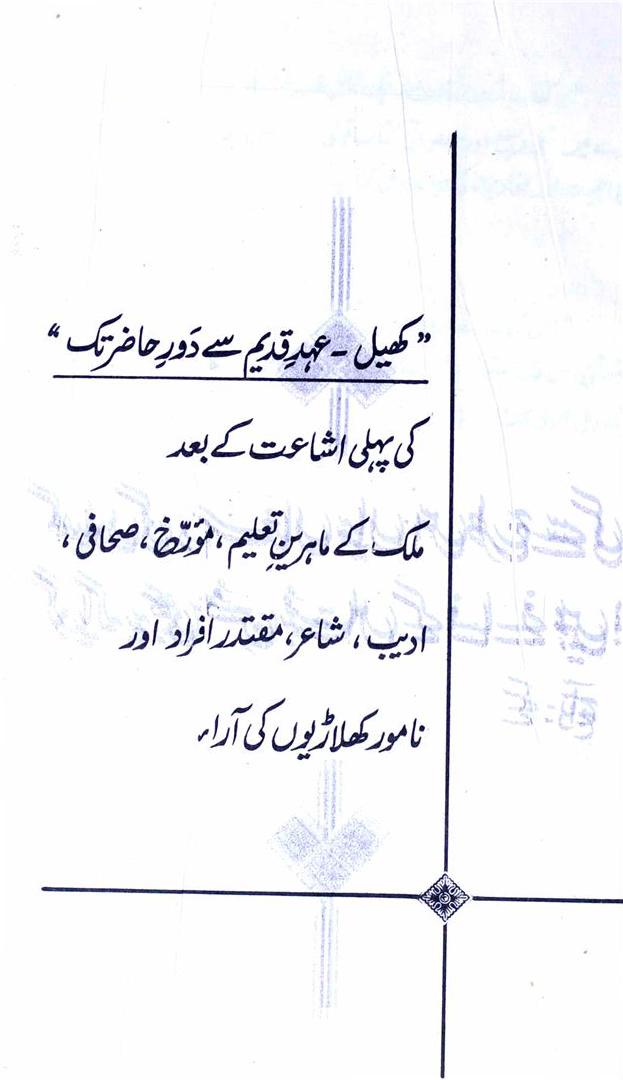 ”کھیل ۔ عہدِ قدیم سے دَورِ حاضر تک“
کی پہلی اشاعت کے بعد
ملک کے ماہرینِ تعلیم، مؤرّخ، صحافی،
ادیب، شاعر، مقتدر افراد اور
نامور کھلاڑیوں کی آراء